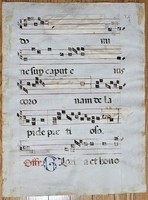 do mi
ne sup caput e ius
coro nam de la
pi de pre ti oso.
Offr. Glori a et hono